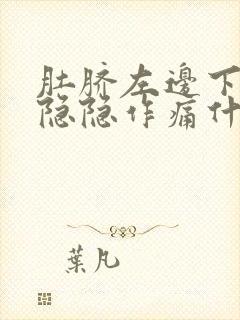 肚脐左邊下
隐隐作痛什
葉凡